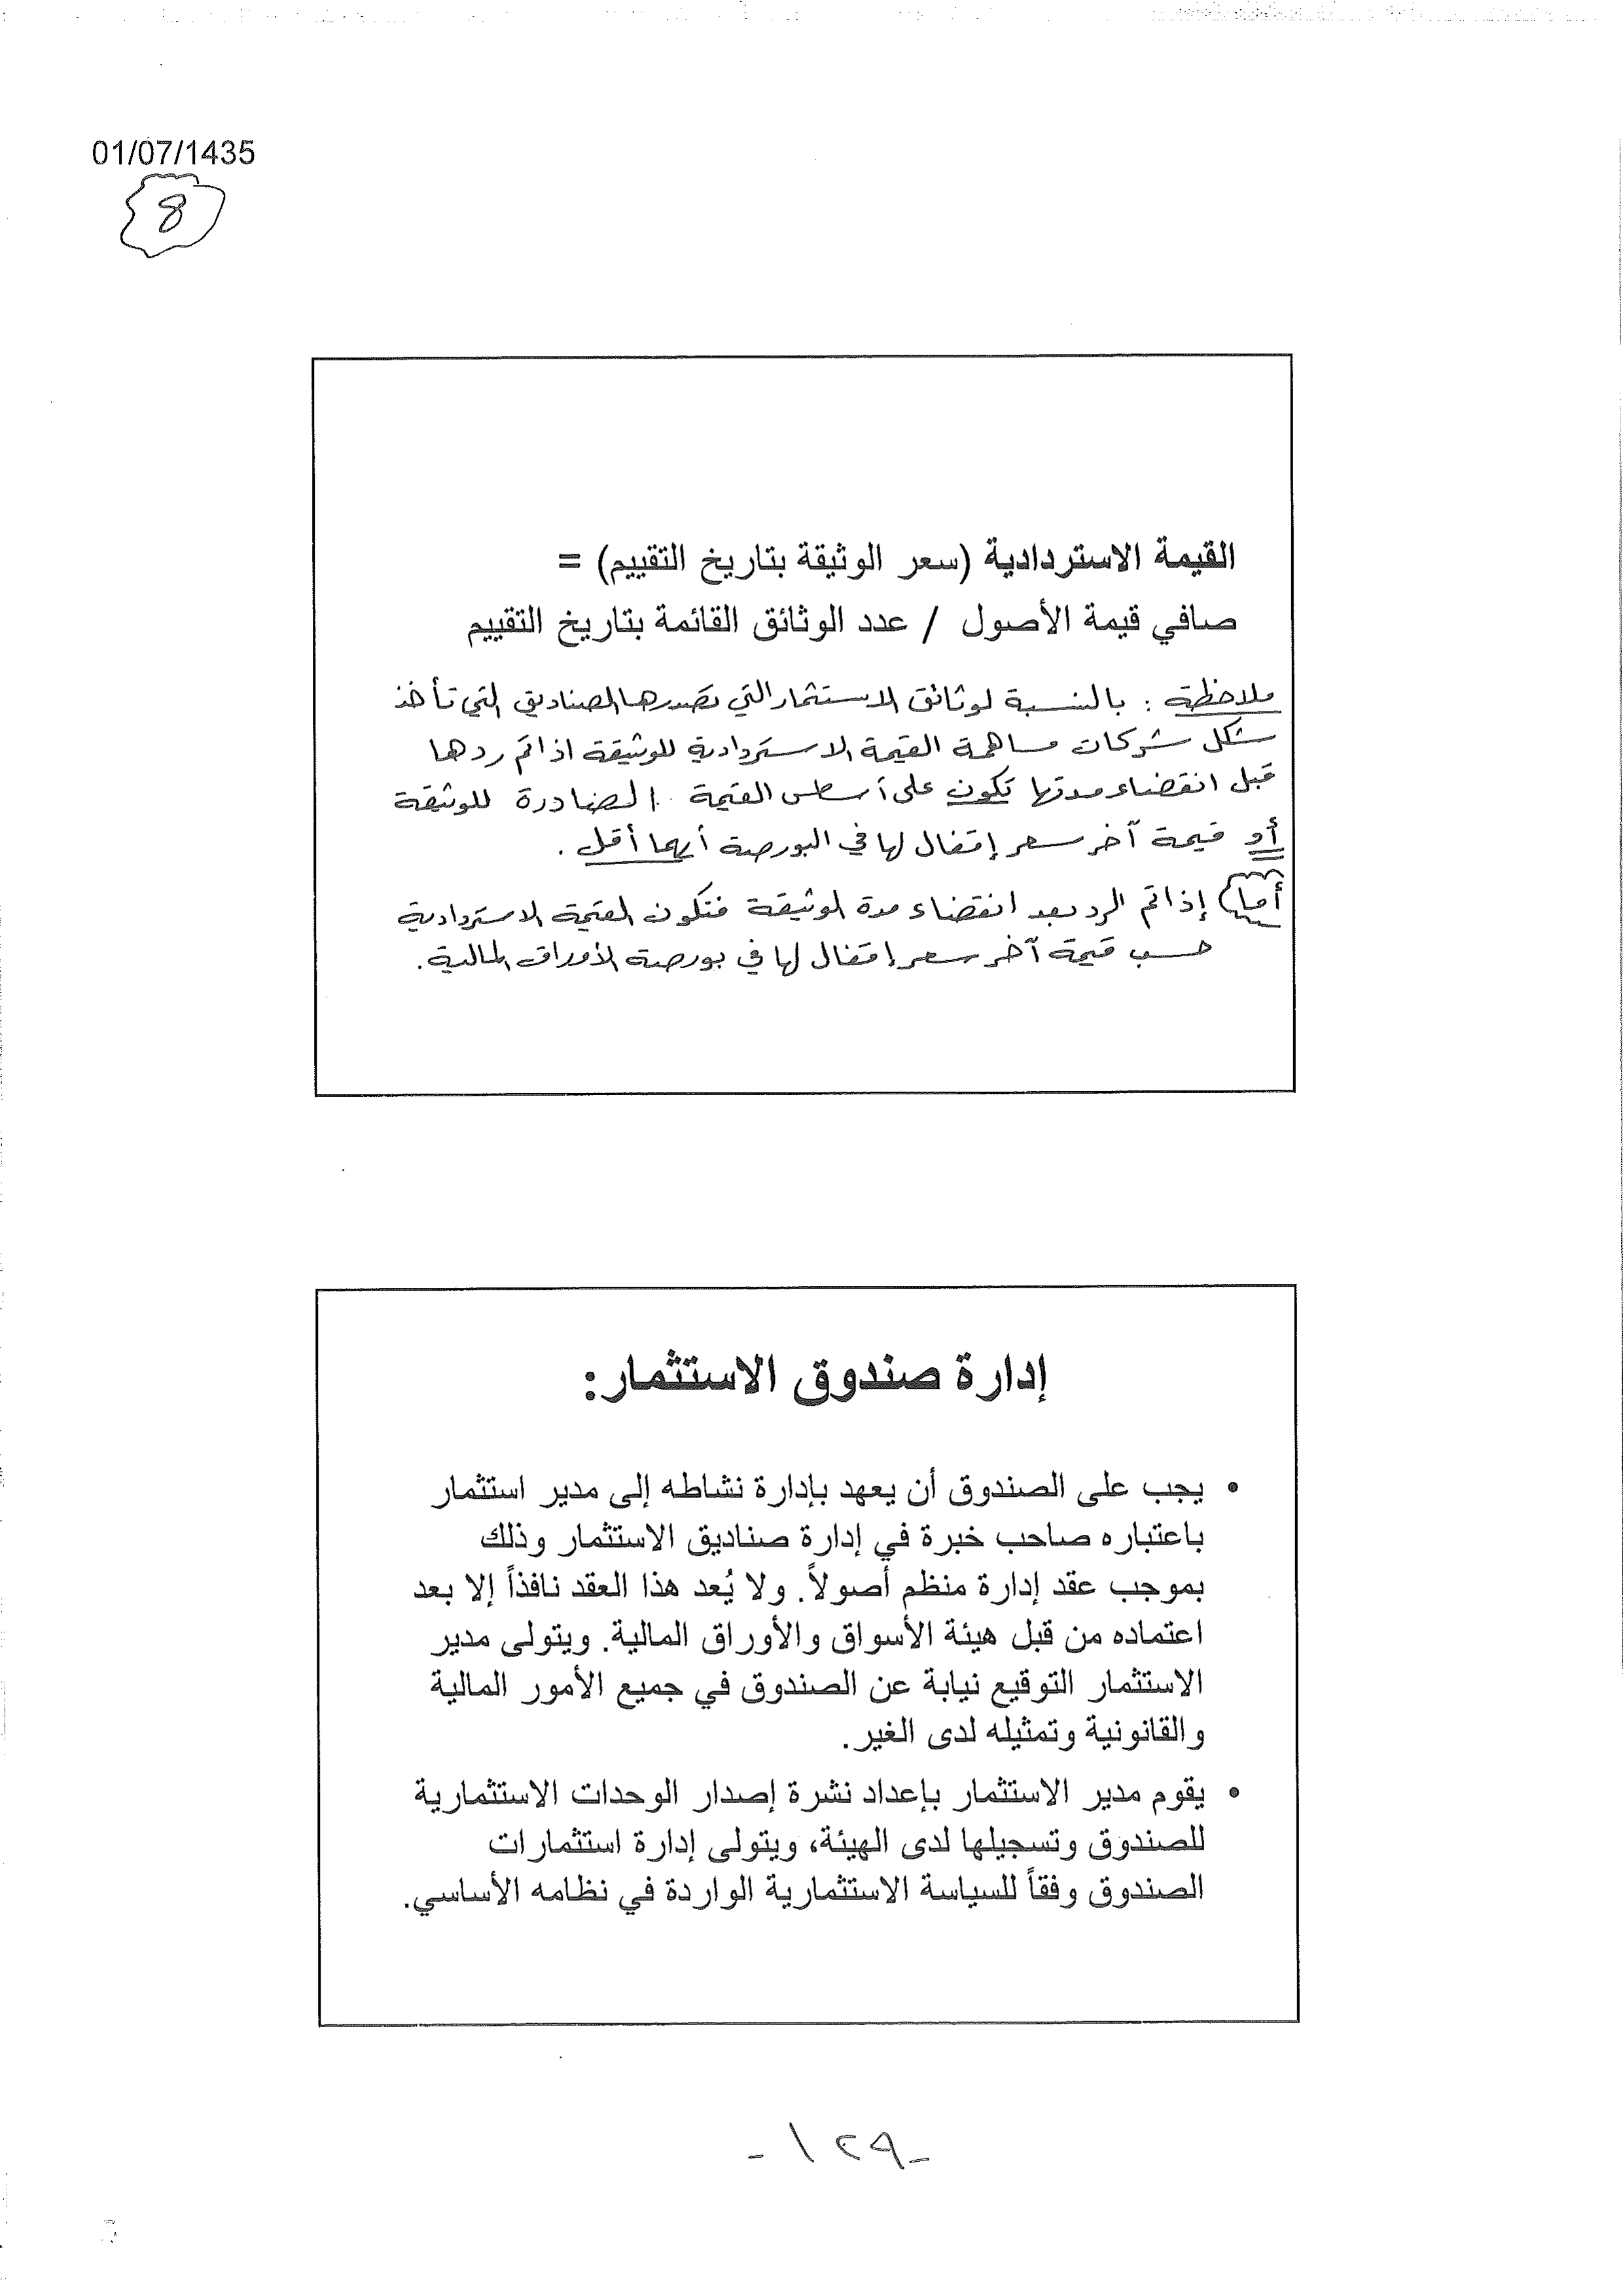 01/07/1435
8
القيمة الاستردادية (سعر الوثيقة بتاريخ التقييم) =
صافي قيمة الأصول / عدد الوثائق القائمة بتاريخ التقييم
ملاحظة : بالنسبة لوثائق الاستثمار التي تصدرها الصناديق التي تأخذ
شكل شركات مساهمة القيمة الاستردادية للوثيقة اذا تم ردها
قبل انقضاء مدتها تكون على أساس القيمة الصادرة للوثيقة
أو قيمة آخر سعر إقفال لها في البورصة أيهما أقل .
أما إذا تم الرد بعد انقضاء مدة الوثيقة فتكون القيمة الاستردادية
حسب قيمة آخر سعر إقفال لها في بورصة الأوراق المالية .
إدارة صندوق الاستثمار:
• يجب على الصندوق أن يعهد بإدارة نشاطه إلى مدير استثمار
باعتباره صاحب خبرة في إدارة صناديق الاستثمار وذلك
بموجب عقد إدارة منظم أصولاً. ولا يُعد هذا العقد نافذاً إلا بعد
اعتماده من قبل هيئة الأسواق والأوراق المالية. ويتولى مدير
الاستثمار التوقيع نيابة عن الصندوق في جميع الأمور المالية
والقانونية وتمثيله لدى الغير.
• يقوم مدير الاستثمار بإعداد نشرة إصدار الوحدات الاستثمارية
للصندوق وتسجيلها لدى الهيئة، ويتولى إدارة استثمارات
الصندوق وفقاً للسياسة الاستثمارية الواردة في نظامه الأساسي.
- ١٢٩ -